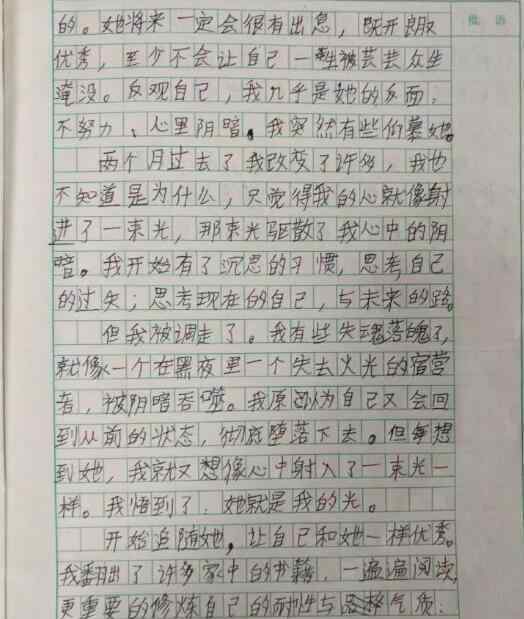 批 语
的。她将来一定会很有出息，既开朗又
优秀，至少不会让自己一生被芸芸众生
淹没。反观自己，我几乎是她的反面：
不努力、心里阴暗。我突然有些仰慕她。
两个月过去了我改变了许多，我也
不知道是为什么，只觉得我的心就像射
进了一束光，那束光驱散了我心中的阴
暗。我开始有了沉思的习惯，思考自己
的过失；思考现在的自己，与未来的路。
但我被调走了。我有些失魂落魄了，
就像一个在黑夜里一个失去火光的宿营
者，被阴暗吞噬。我原以为自己又会回
到从前的状态，彻底堕落下去。但每想
到她，我就又想像心中射入了一束光一
样。我悟到了，她就是我的光。
开始追随她，让自己和她一样优秀。
我翻出了许多家中的书籍，一遍遍阅读，
更重要的修炼自己的耐性与气质：